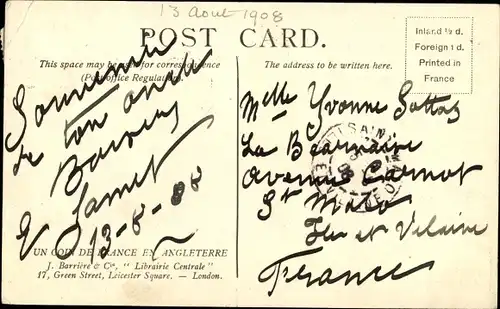 13 aout 1908
POST CARD.
This space may be used for correspondence
(Post Office Regulation).
The address to be written here.
Inland ½ d.
Foreign 1 d.
Printed in
France
Souvenir
de ton oncle
13-8-08
Melle Yvonne
La Bearnaise
Avenue Carnot
St Malo
Ille et Vilaine
France
UN COIN DE FRANCE EN ANGLETERRE
J. Barrière & Cie, " Librairie Centrale "
17, Green Street, Leicester Square. — London.